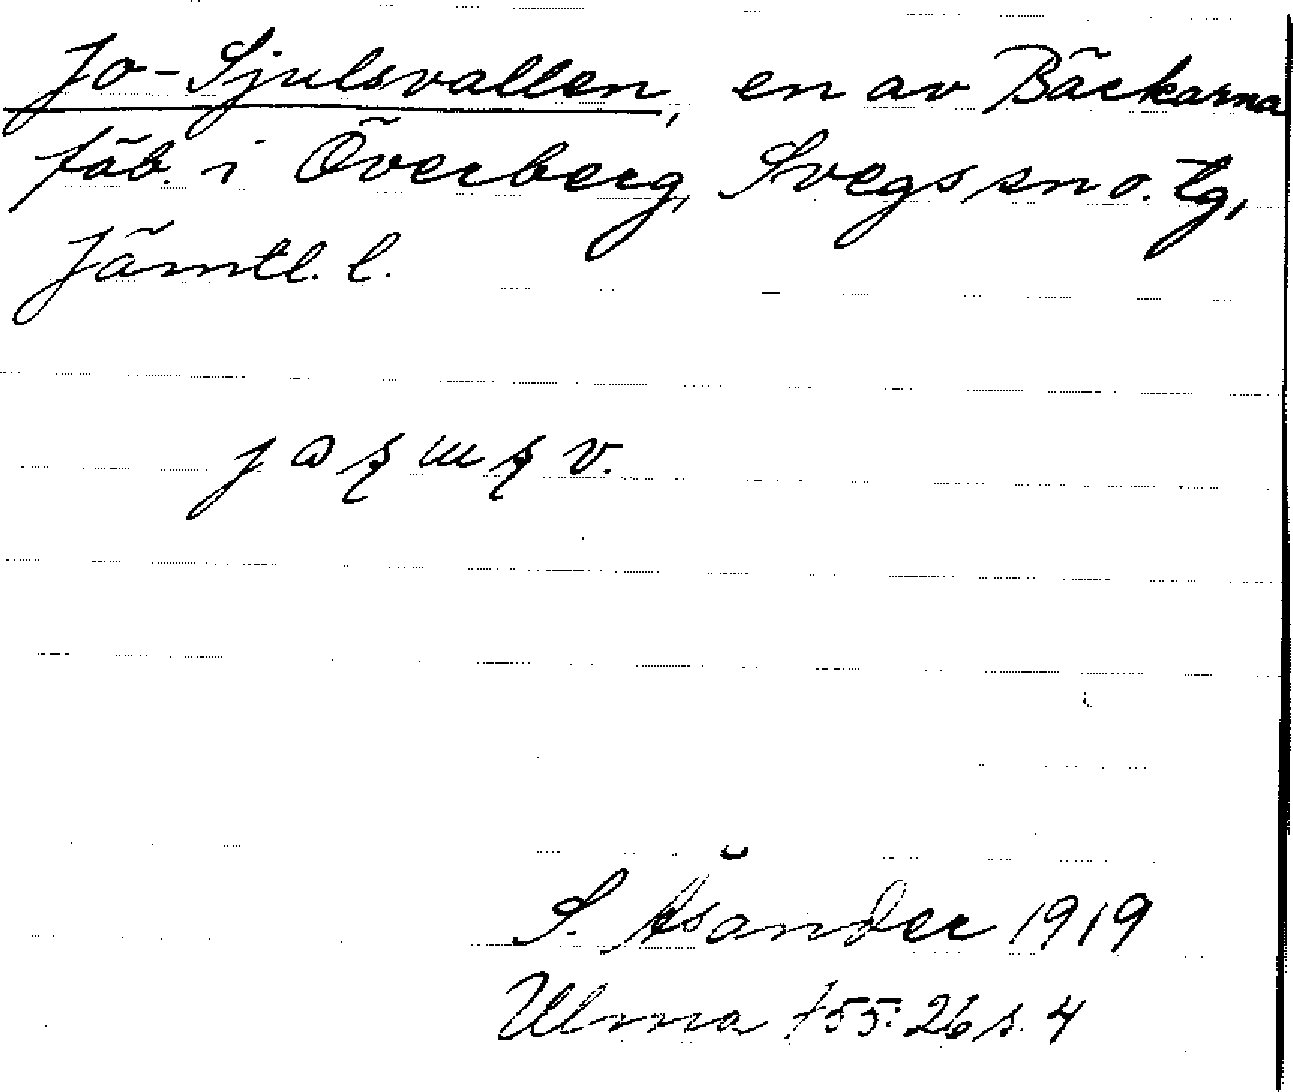 Jo-Sjulsvallen, en av Bäckarna
fäb. i Överberg, Svegs sn o. tg,
Jämtl. l.
S. Åsander 1919
Ulma 155:26 s. 4